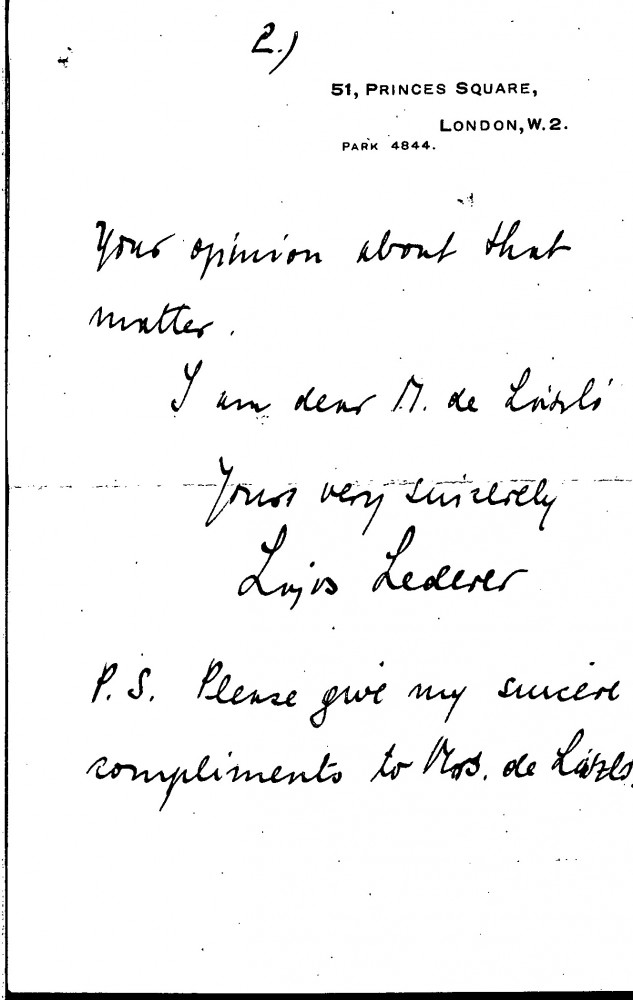 2.)
51, PRINCES SQUARE,
LONDON, W.2.
PARK 4844.
Your opinion about that
matter.
I am dear M. de László
Yours very sincerely
Lajos Lederer
P.S. Please give my sincere
compliments to Mrs. de László.